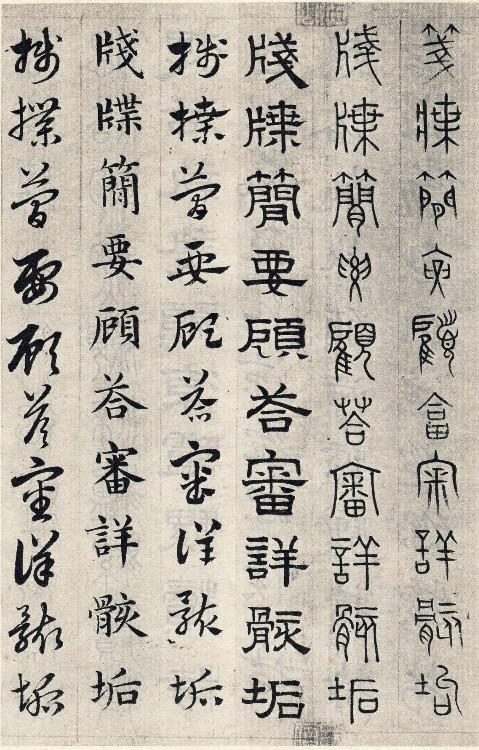 箋牒簡要顧答審詳骸垢
牋牒簡要顧荅審詳骸垢
牋牒簡要頋荅審詳骸垢
牋牒簡要顧荅審詳骸垢
牋牒簡要頋荅審詳骸垢
牋牒簡要顧荅審詳骸垢